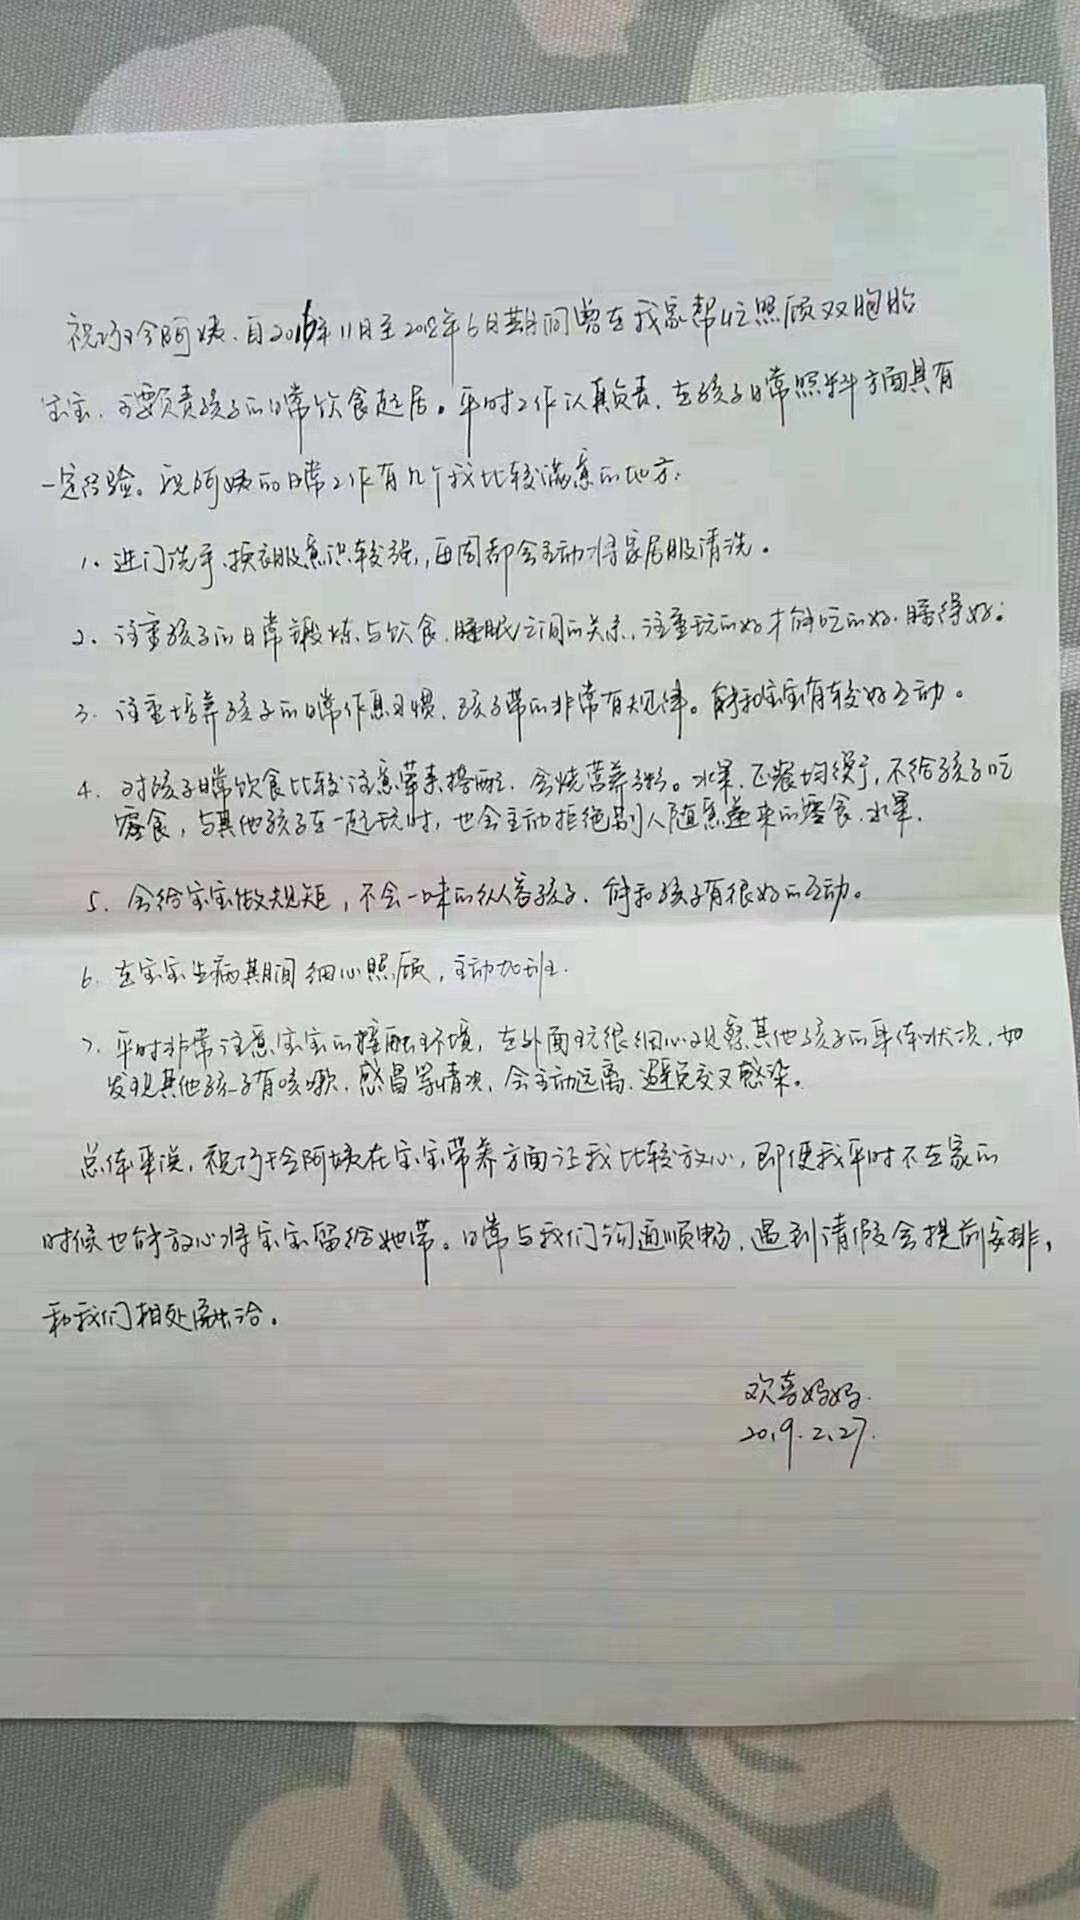 祝巧玲阿姨，自2016年11月至2018年6月期间曾在我家帮忙照顾双胞胎
宝宝，主要负责孩子的日常饮食起居。平时工作认真负责，在孩子日常照料方面具有
一定经验。祝阿姨的日常工作有几个我比较满意的地方：
1. 进门洗手、换衣服意识较强，每周都会主动将家居服清洗。
2. 注重孩子的日常锻炼与饮食、睡眠之间的关系，注重玩的好才能吃的好、睡得好；
3. 注重培养孩子的日常作息习惯，孩子带的非常有规律。能和宝宝有较好互动。
4. 对孩子日常饮食比较注意荤素搭配，会烧营养粥。水果、正餐均缐了，不给孩子吃
零食，与其他孩子在一起玩时，也会主动拒绝别人随意递来的零食、水果.
5. 会给宝宝做规矩，不会一味的纵容孩子，能和孩子有很好的互动。
6. 在宝宝生病期间细心照顾，主动加班.
7. 平时非常注意宝宝的接触环境，在外面玩很细心观察其他孩子的身体状况，如
发现其他孩子有咳嗽、感冒等情况，会主动远离，避免交叉感染。
总体来说，祝巧玲阿姨在宝宝带养方面让我比较放心，即便我平时不在家的
时候也能放心将宝宝留给她带。日常与我们沟通顺畅，遇到请假会提前安排，
和我们相处融洽。
欢喜妈妈.
2019.2.27.